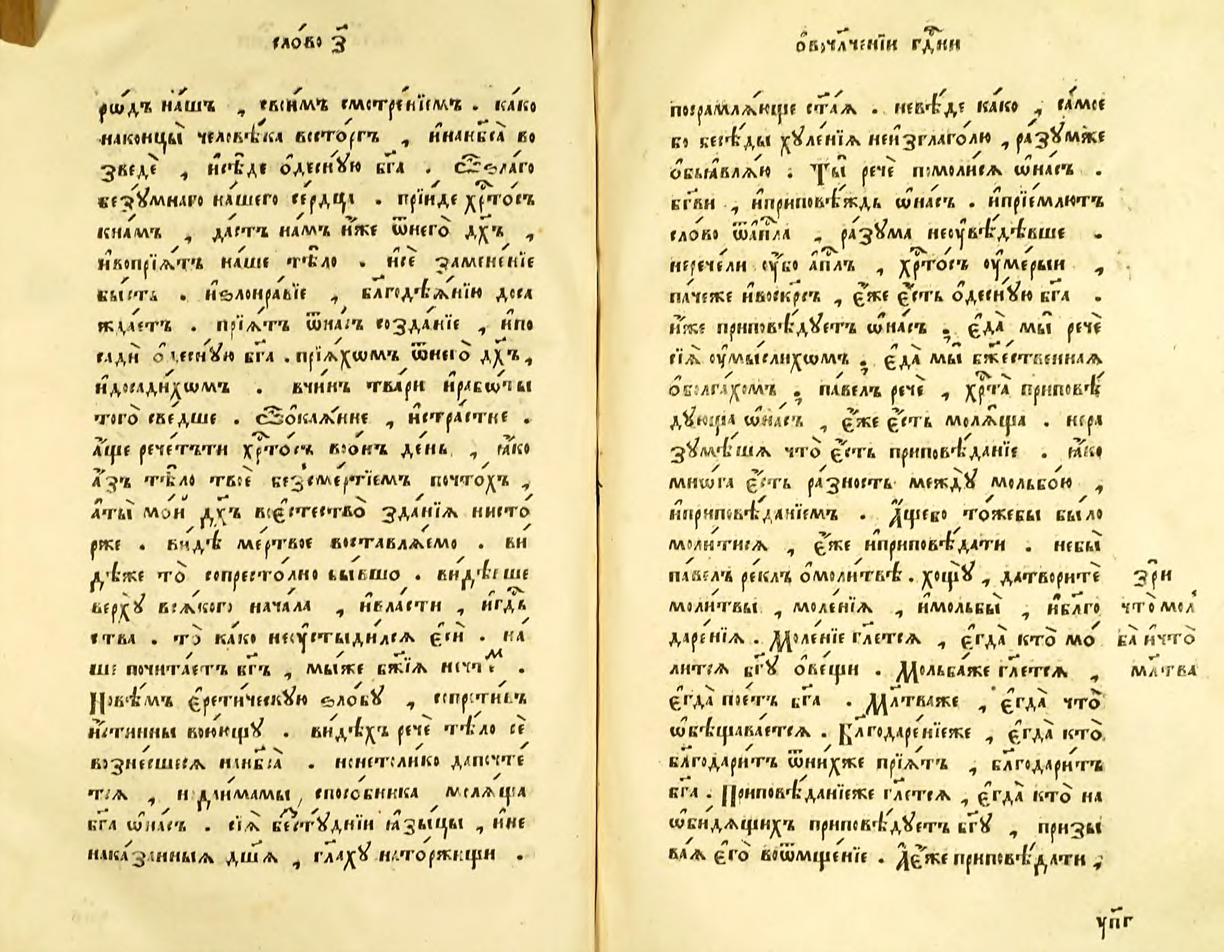 сло́во з҃
рѡ́дъ на́шъ , свои́мъ смотре́нїемъ . ка́ко
наконцы̀ человѣ́ка восто́ргъ , и҆нанб҃са̀ во
зведѐ , и҆сѣ́де ѻ҆десну́ю бг҃а . Ѿѕла́го
безу́мнаго на́шего се́рдца . прїи́де хрⷭ҇то́съ
кна́мъ , да́стъ на́мъ и҆́же ѿнего̀ дх҃ъ ,
и҆воспрїѧ́тъ на́ше тѣ́ло . и҆сѐ замене́нїе
бы́сть . и҆ѕлонра́вїе , благодѣѧ́нїю доса
жда́етъ . прїѧ́тъ ѿна́съ созда́нїе , и҆по
садѝ ѻ҆десну́ю бг҃а . прїѧ́хѡмъ ѿнего̀ дх҃ъ ,
и҆досади́хѡмъ . вчи́нъ тва́ри и҆рабѡты
того̀ све́дше . Ѽѻ҆каѧ́нне , и҆стра́стне .
а҆́ще рече́тъти хрⷭ҇то́съ во́онъ де́нь , ꙗ҆́ко
а҆́зъ тѣ́ло твоѐ безсме́ртїемъ почто́хъ ,
а҆ты̀ мо́й дх҃ъ вое҆стество̀ зда́нїѧ нисто
рже . ви́дѣ ме́ртвое воставлѧ́емо . ви
дѣ́же то̀ сопресто́лно бы́вшо . ви́дѣвше
верхꙋ̀ всѧ́кого нача́ла , и҆вла́сти , и҆гдⷭ҇ь
ства . то̀ ка́ко неꙋстыди́лсѧ є҆сѝ . на́
ше почита́етъ бг҃ъ , мы́же бж҃їѧ нечтⷨ҇ .
Но́вѣмъ є҆рети́ческую ѕло́бꙋ , сопроти́въ
и҆́стинны вою́ющꙋ . ви́дѣхъ речѐ тѣ́ло сѐ
возне́сшеесѧ нанб҃са̀ . нонетоли́ко дапочте́
тсѧ , и да́имамы , спосо́бника молѧ́ща
бг҃а ѡ҆на́съ . сїѧ̀ бестꙋ́днїи ꙗ҆зы́цы , и҆не
нака́занныѧ дш҃ѧ , гла́хꙋ наторжи́щи .
ѻ҆воч҃лч҃енїи гдⷭ҇ни
посрамлѧ́юще ст҃а́ѧ . невѣ́де ка́ко , са́мое
бо бесѣ́ды хꙋле́нїѧ неи҆зглаго́лю , ра́зумже
ѻ҆бꙗ҆влѧ́ю . Ты̀ речѐ помоли́сѧ ѡ҆на́съ .
бг҃ви , и҆приповѣ́ждь ѡ҆на́съ . и҆прїе́млютъ
сло́во ѿа҆пⷭ҇ла , ра́зума неоувѣ́дѣвше .
неречели оу҆́бо а҆пⷭ҇лъ , хрⷭ҇то́съ оу҆ме́рыи ,
па́чеже и҆воскр҃съ , є҆́же є҆́сть ѻ҆десну́ю бг҃а .
и҆́же приповѣ́дꙋетъ ѡ҆на́съ . є҆да̀ мы̀ речѐ
сїѧ̀ оу҆мы́слихѡмъ ; є҆да̀ мы̀ бж҃е́ственнаѧ
ѻ҆болга́хомъ ; па́велъ речѐ , хрⷭ҇та̀ приповѣ́
дꙋюща ѡ҆на́съ , є҆́же є҆́сть молѧ́ща . нера
зꙋмѣ́шѧ что̀ є҆́сть приповѣ́данїе . ꙗ҆́ко
мно́га є҆́сть ра́зность междꙋ̀ мольбо́ю ,
и҆приповѣ́данїемъ . А҆́щебо то́жебы бы́ло
моли́тисѧ , є҆́же и҆приповѣ́дати . небы̀
па́велъ ре́клъ ѻ҆моли́твѣ . хощꙋ̀ , да́творите
моли́твы , моле́нїѧ , и҆мольбы̀ , и҆бл҃го
даре́нїѧ . Моле́нїе гл҃етсѧ , є҆гда̀ кто̀ мо́
литсѧ бг҃ꙋ ѻ҆ве́щи . Мольба́же гл҃етсѧ ,
є҆гда̀ пое́тъ бг҃а . Мл҃тваже , є҆гда̀ что̀
ѡ҆бѣщава́етсѧ . Благодаре́нїеже , є҆гда̀ кто̀
бл҃годари́тъ ѿни́хже прїѧ́тъ , бл҃годари́тъ
бг҃а . Приповѣ́данїеже гл҃етсѧ , є҆гда̀ кто̀ на
ѡ҆би́дѧщихъ приповѣ́дꙋетъ бг҃ꙋ , призы
ва́ѧ є҆го̀ воѿмще́нїе . А҆є҆́же приповѣ́дати ,
зрѝ
что̀ мол
ба̀ и҆что̀
мл҃тва
уп҃г